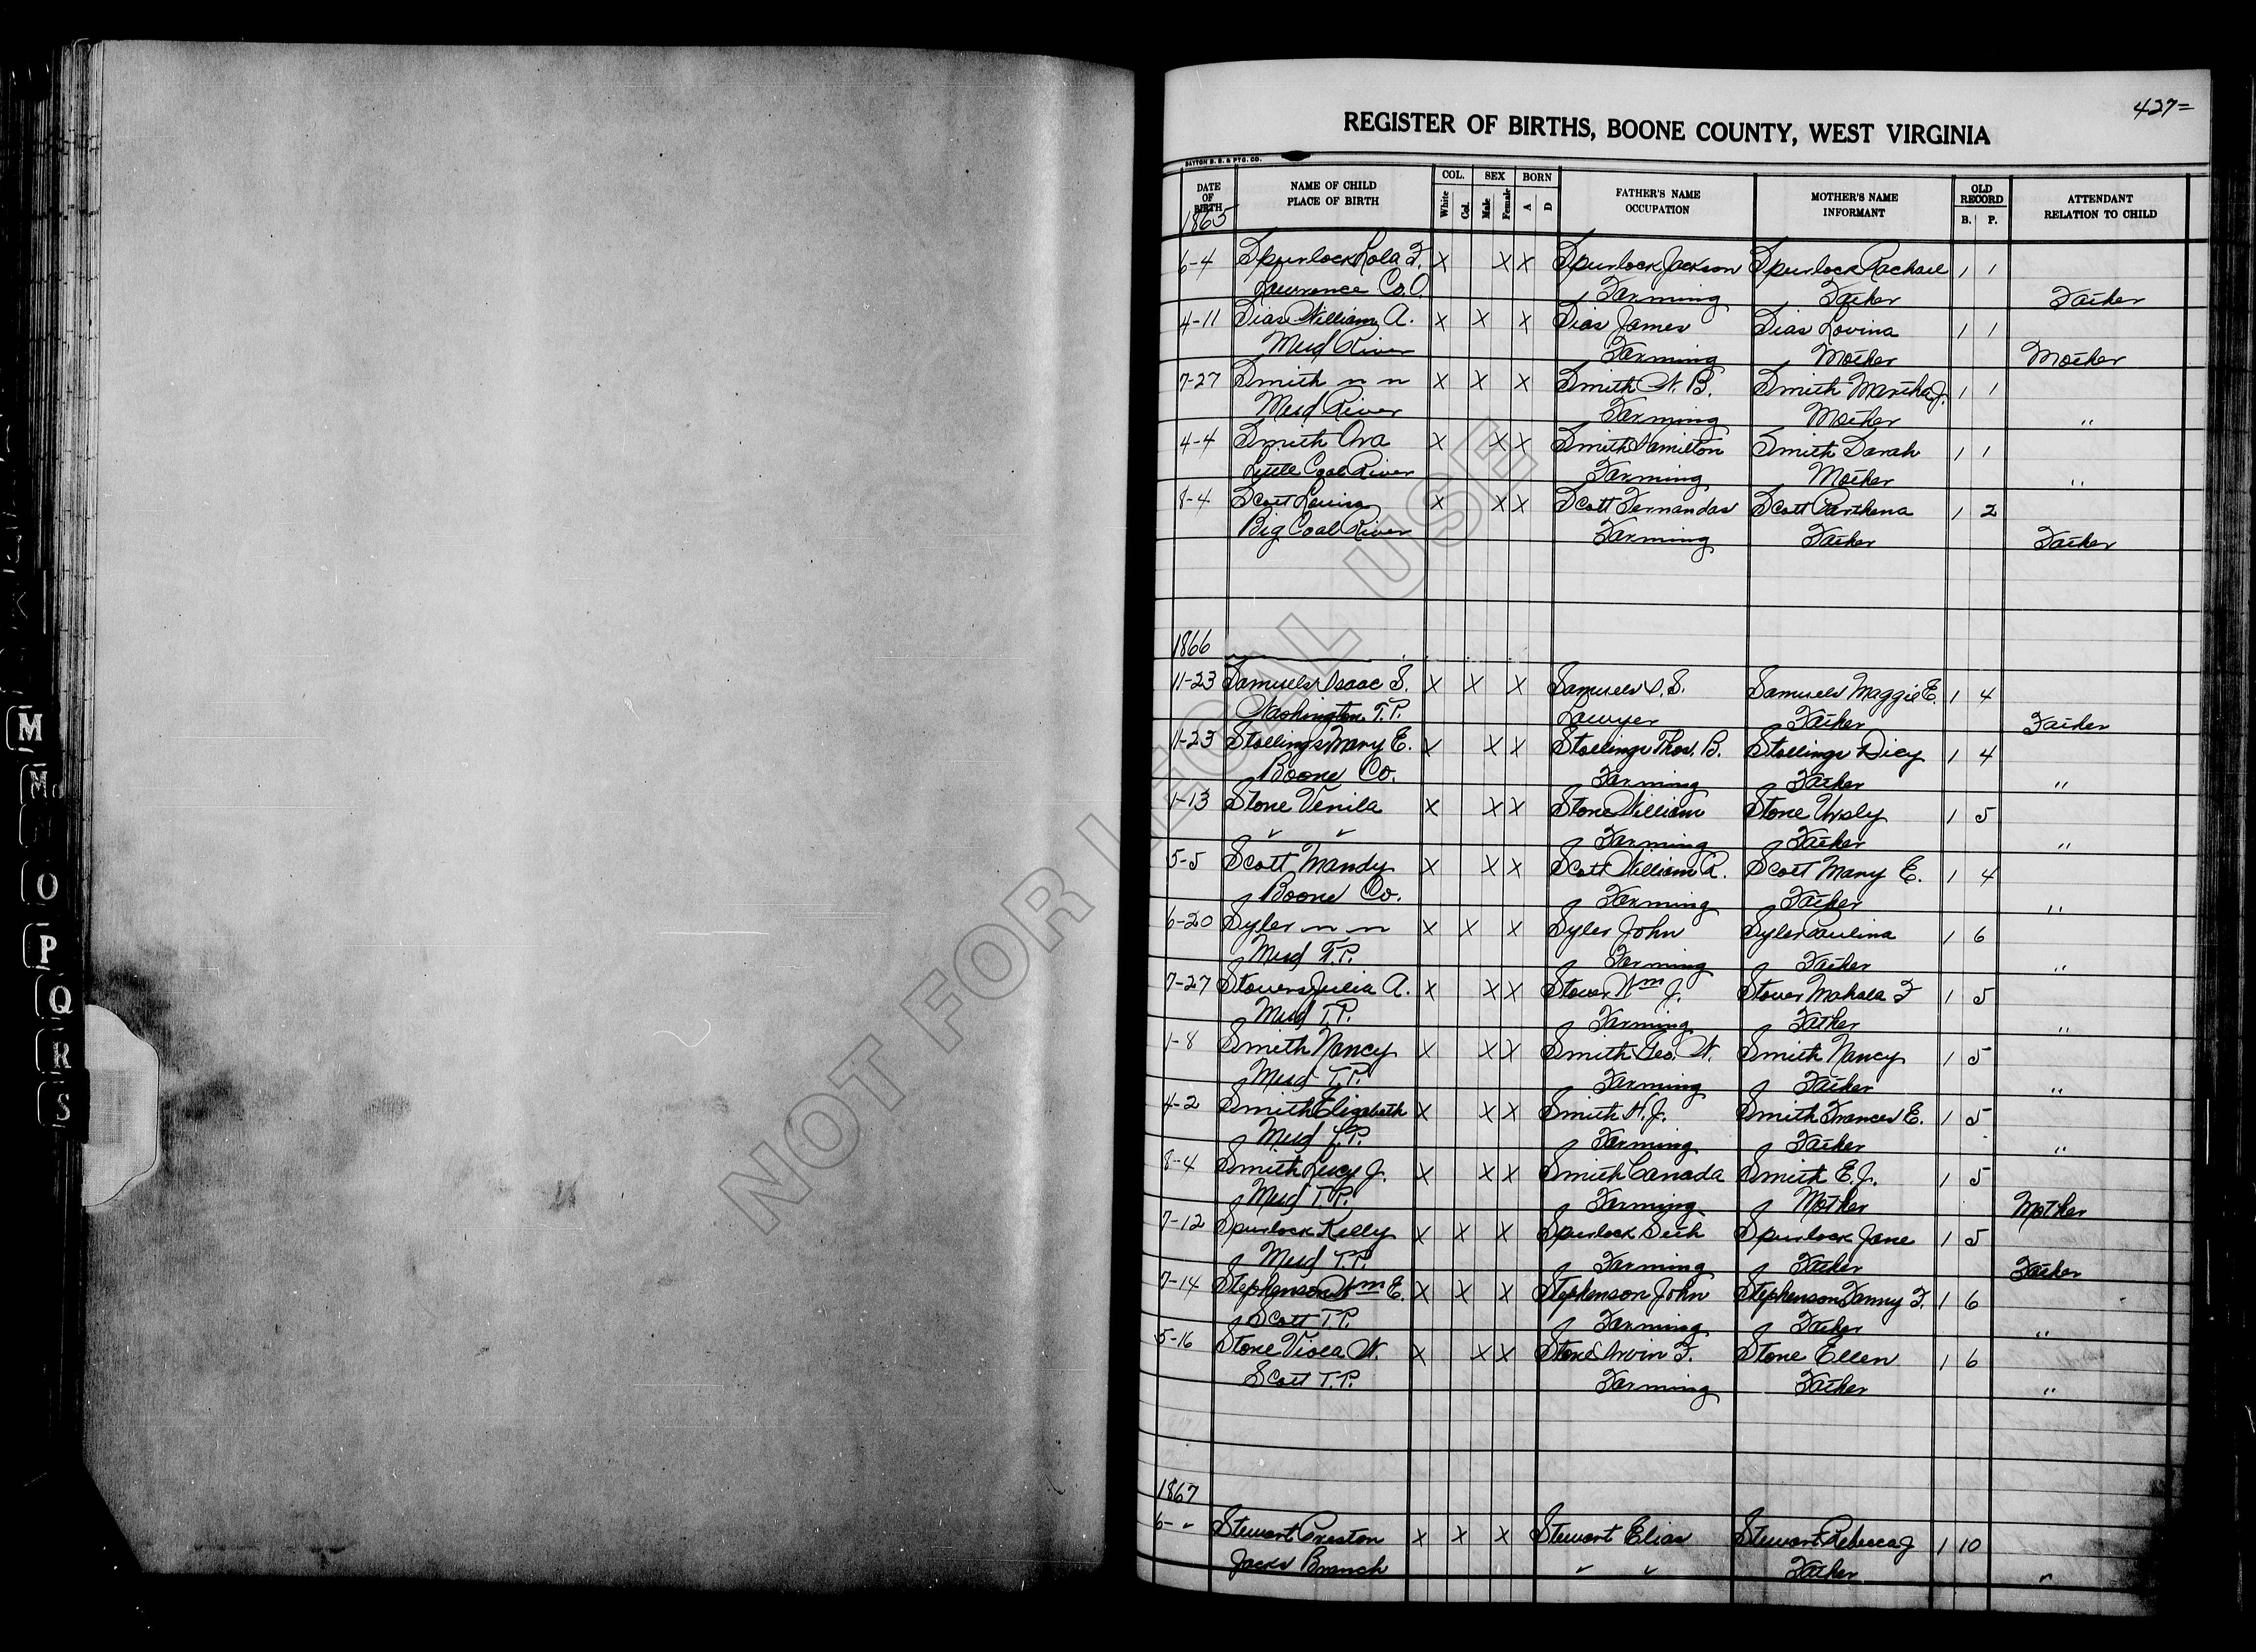 427=
REGISTER OF BIRTHS, BOONE COUNTY, WEST VIRGINIA
DAYTON B. B. & PTG. CO.
DATE OF BIRTH NAME OF CHILD PLACE OF BIRTH COL. White Col. SEX Male Female BORN A D FATHER'S NAME OCCUPATION MOTHER'S NAME INFORMANT OLD RECORD B. P. ATTENDANT RELATION TO CHILD
1865
6-4 Spurlock Lola F. X X X Spurlock Jackson Spurlock Rachael 1 1
Lawrence Co. O. Farming Father Father
4-11 Sias William A. X X X Sias James Sias Lovina 1 1
Mud River Farming Mother Mother
7-27 Smith n n X X X Smith W. B. Smith Martha J. 1 1
Mud River Farming Mother "
4-4 Smith Ora X X X Smith Hamilton Smith Sarah 1 1
Little Coal River Farming Mother "
8-4 Scott Louisa X X X Scott Fernandas Scott Parthena 1 2
Big Coal River Farming Father Father
1866
11-23 Samuels Isaac S. X X X Samuels I. S. Samuels Maggie E. 1 4
Washington T.P. Lawyer Father Father
11-23 Stollings Mary E. X X X Stollings Thos. B. Stollings Dicy 1 4
Boone Co. Farming Father "
1-13 Stone Venila X X X Stone William Stone Ursly 1 5
" " Farming Father "
5-5 Scott Mandy X X X Scott William A. Scott Mary E. 1 4
Boone Co. Farming Father "
6-20 Syler n n X X X Syler John Syler Paulina 1 6
Mud T.P. Farming Father "
7-27 Stovers Julia A. X X X Stover Wm J. Stover Mahala F 1 5
Mud T.P. Farming Father "
1-8 Smith Nancy X X X Smith Geo. W. Smith Nancy 1 5
Mud T.P. Farming Father "
4-2 Smith Elizabeth X X X Smith H. J. Smith Frances E. 1 5
Mud T.P. Farming Father "
8-4 Smith Lucy J. X X X Smith Canada Smith E. J. 1 5
Mud T.P. Farming Mother Mother
7-12 Spurlock Kelly X X X Spurlock Seth Spurlock Jane 1 5
Mud T.P. Farming Father Father
7-14 Stephenson Wm E. X X X Stephenson John Stephenson Fanny F. 1 6
Scott T.P. Farming Father "
5-16 Stone Viola W. X X X Stone Irvin F. Stone Ellen 1 6
Scott T.P. Farming Father "
1867
6- " Stewart Preston X X X Stewart Elias Stewart Rebecca J 1 10
Jacks Branch " " Father "
M
Mc
O
P
Q
R
S
NOT FOR LEGAL USE